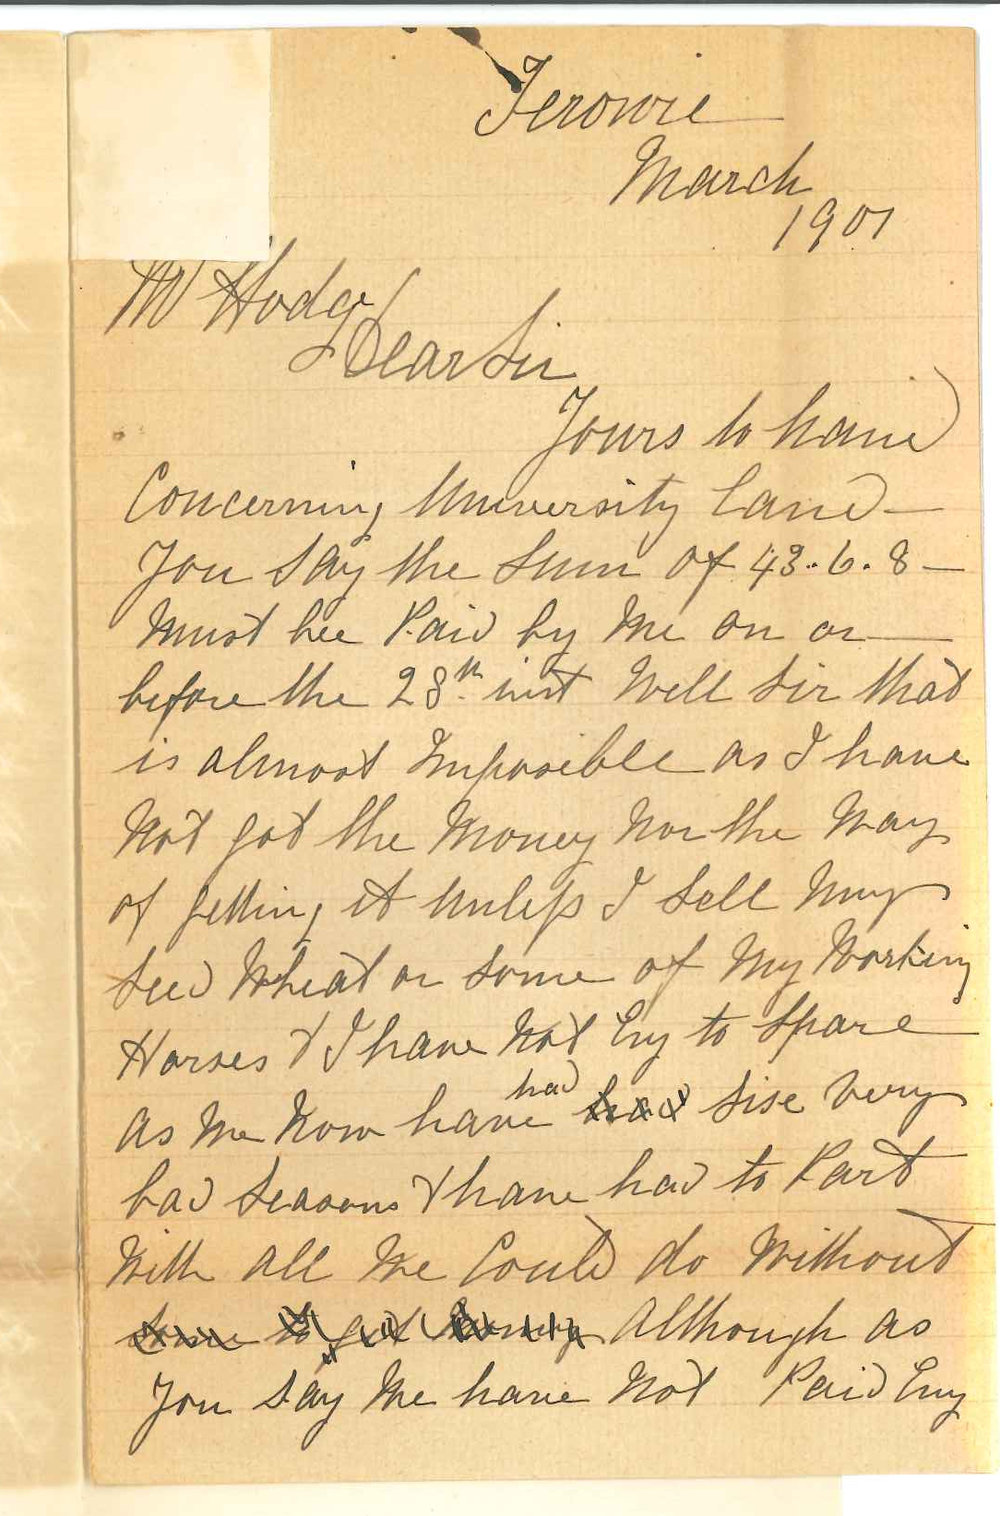 Terowie
March
1901
Mr Hodge
Dear Sir
Yours to hand
Concerning University Land —
You Say the Sum of 43.. 6. 8 —
Must bee Paid by Me on or —
before the 28th inst Well Sir that
is almost Imposible as I have
Not got the Money Nor the Way
of getting it Unless I Sell My
Seed Wheat or Some of My Working
Horses & I have Not Eny to Spare
as We Now have had Sise Very
bad Seasons & have had to Part
With all We Could do Without
although as
You Say We have Not Paid Eny